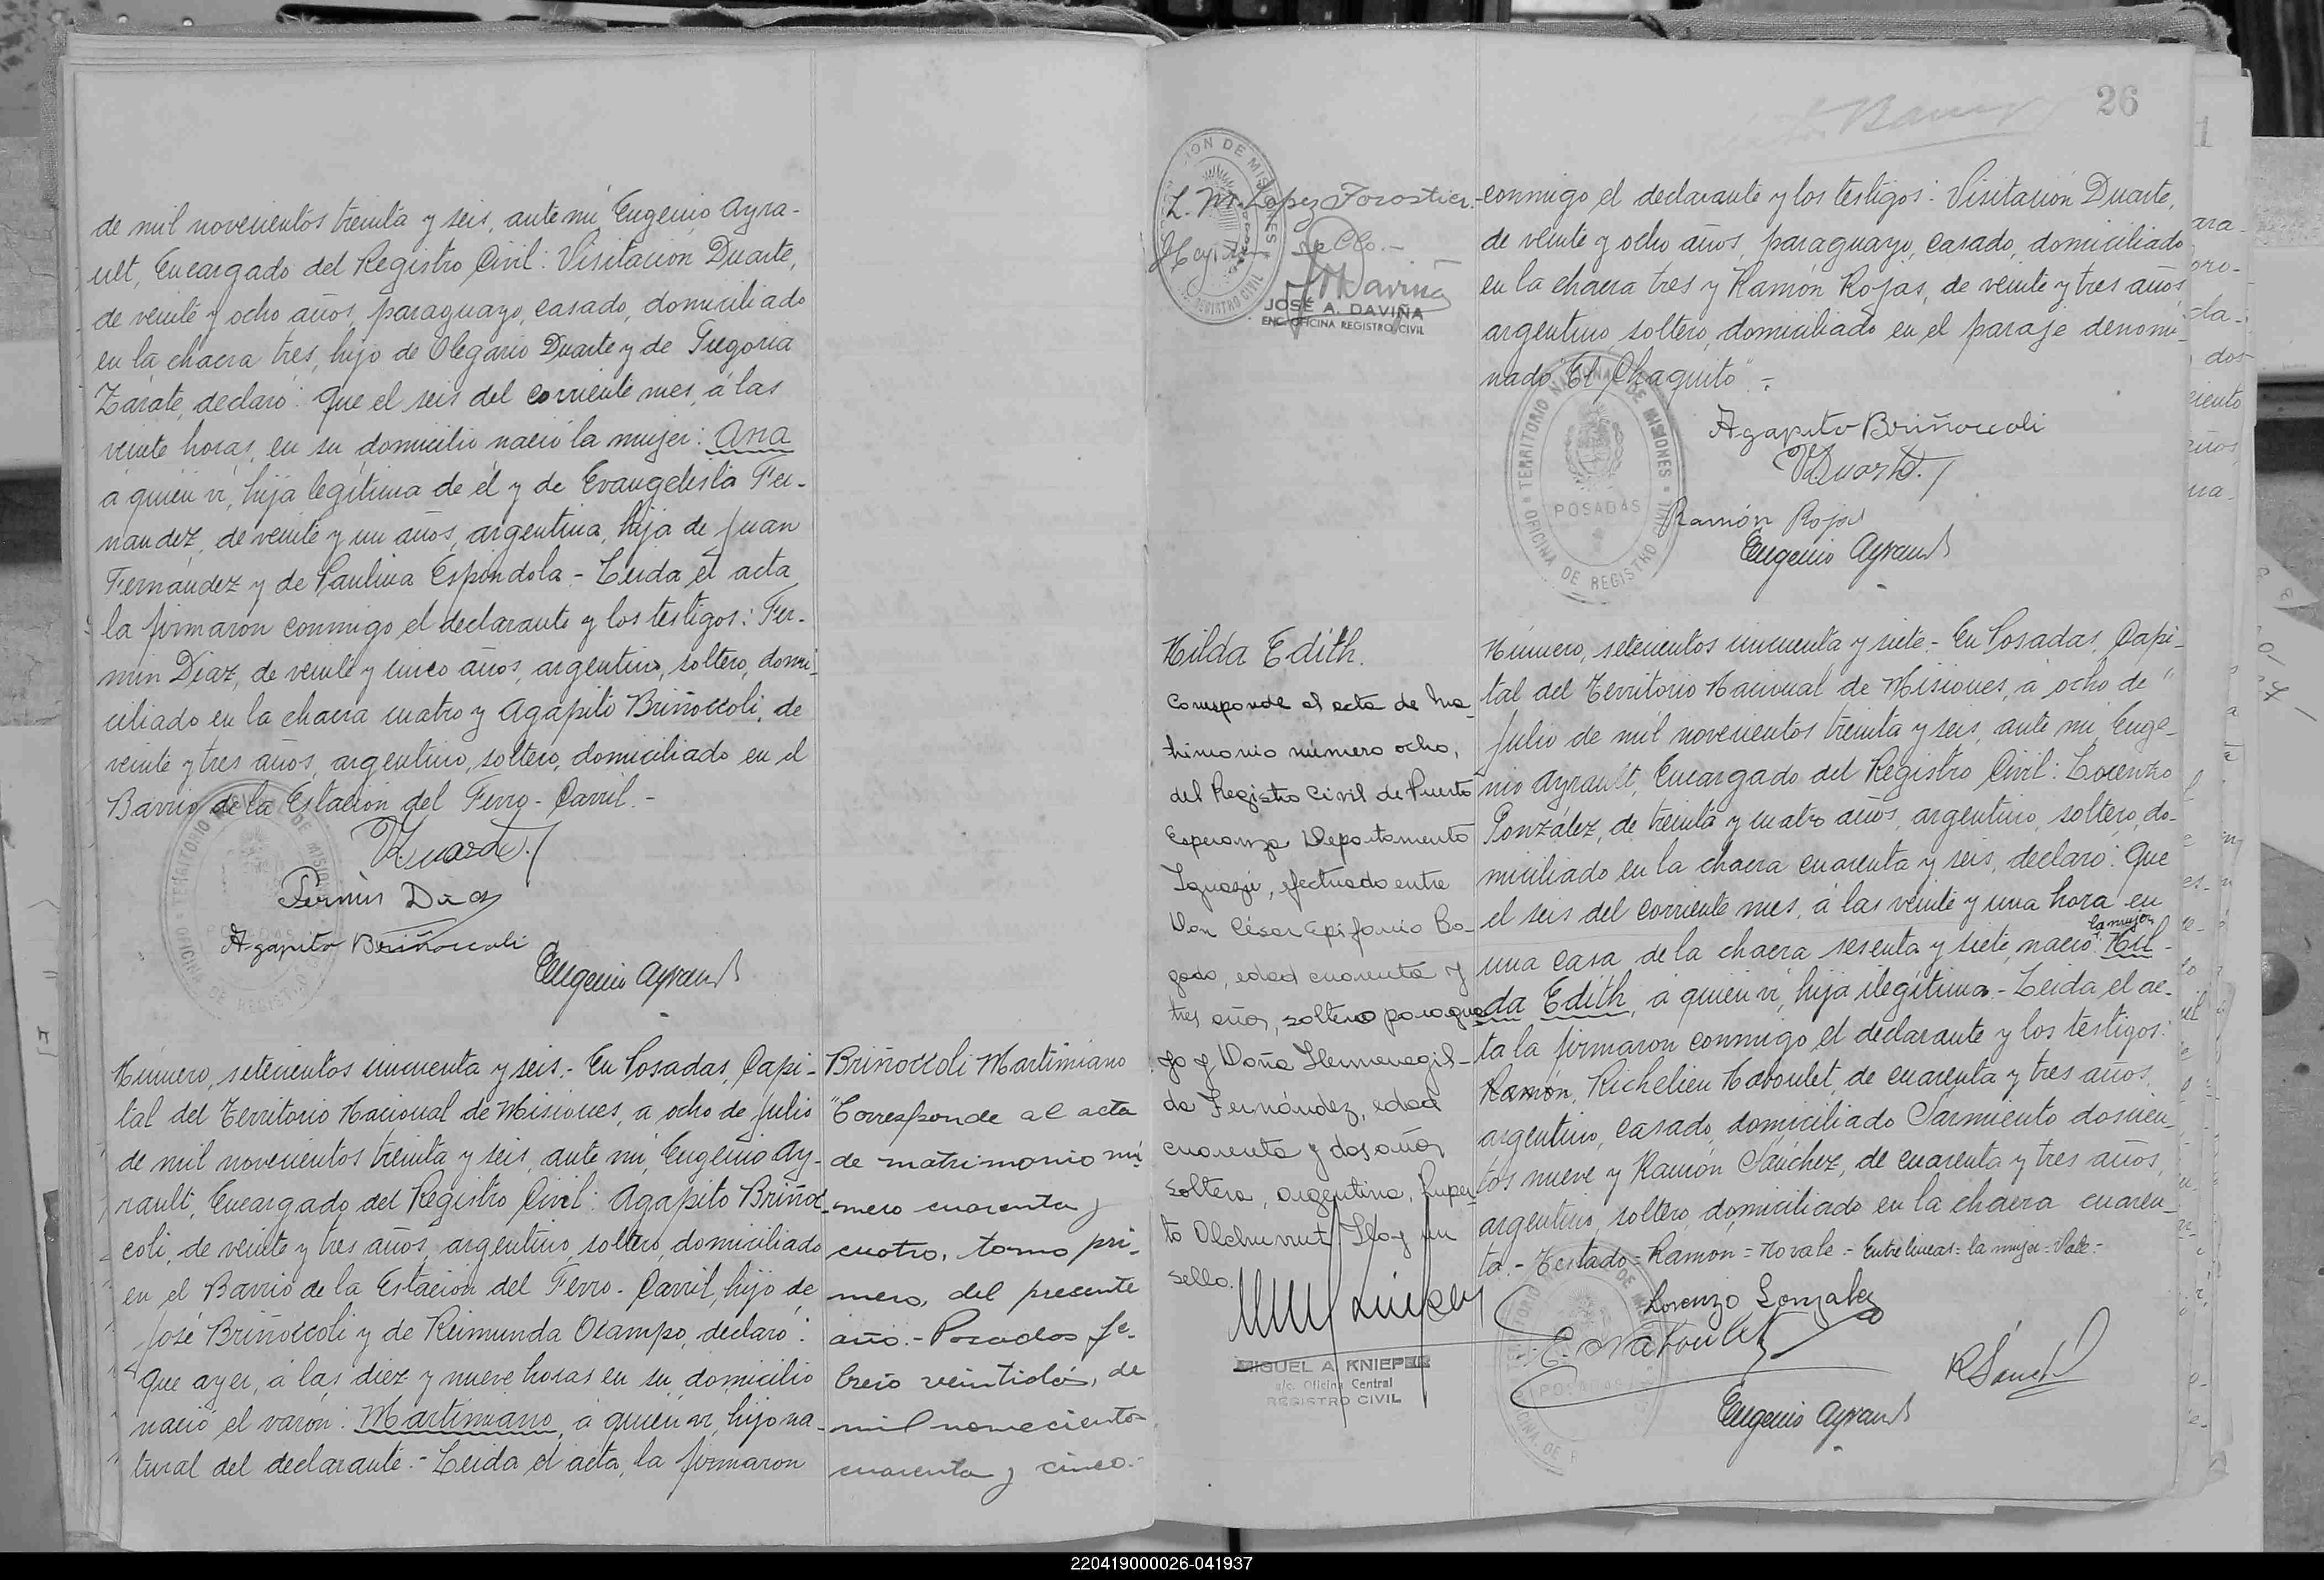 de mil novecientos treinta y seis, ante mí, Eugenio Ayra-
ult, Encargado del Registro Civil: Visitación Duarte,
de veinte y ocho años, paraguayo, casado, domiciliado
en la chacra tres, hijo de Olegario Duarte y de Gregoria
Zárate, declaró: Que el seis del corriente mes, á las
veinte horas, en su domicilio nació la mujer: Ana
á quien ví, hija legítima de él y de Evangelista Fer-
nandez, de veinte y un años, argentina, hija de Juan
Fernández y de Paulina Espíndola.- Leida el acta
la firmaron conmigo el declarante y los testigos: Fer-
min Diaz, de veinte y cinco años, argentino, soltero, domi-
ciliado en la chacra cuatro y Agapito Briñoccoli, de
veinte y tres años, argentino, soltero, domiciliado en el
Barrio de la Estación del Ferro-Carril.-
V. Duarte
Fermin Diaz
Agapito Briñoccoli
Eugenio Ayrault
Número, setecientos cincuenta y seis.- En Posadas, Capi-
tal del Territorio Nacional de Misiones, a ocho de Julio
de mil novecientos treinta y seis, ante mí, Eugenio Ay-
rault, Encargado del Registro Civil: Agapito Briñoc-
coli, de veinte y tres años, argentino, soltero, domiciliado
en el Barrio de la Estación del Ferro-Carril, hijo de
José Briñoccoli y de Reimunda Ocampo, declaró:
Que ayer, á las diez y nueve horas en su domicilio
nació el varón: Martimiano, á quien ví, hijo na-
tural del declarante.- Leida el acta, la firmaron
Briñoccoli Martimiano
"Corresponde al acta
de matrimonio nú-
mero cuarenta y
cuatro, tomo pri-
mero, del presente
año.- Posadas fe-
brero veintidós, de
mil novecientos
cuarenta y cinco.-
26
L. M. Lopez Forastier
JOSÉ A. DAVIÑA
ENC. OFICINA REGISTRO CIVIL
conmigo el declarante y los testigos: Visitación Duarte,
de veinte y ocho años, paraguayo, casado, domiciliado
en la chacra tres y Ramón Rojas, de veinte y tres años
argentino soltero, domiciliado en el paraje denomi-
nado "El Chaquito".-
TERRITORIO NACIONAL DE MISIONES
POSADAS
OFICINA DE REGISTRO CIVIL
Agapito Briñoccoli
V. Duarte
Ramón Rojas
Eugenio Ayrault
Hilda Edith.
Corresponde al acta de ma-
trimonio número ocho,
del Registro Civil de Puerto
Esperanza Departamento
Iguazú, efectuado entre
Don César Epifanio Bo-
gado, edad cuarenta y
tres años, soltero paragua-
yo y Doña Hermenegil-
da Fernández, edad
cuarenta y dos años
soltera, argentina,
Hay un
sello.
MIGUEL A. KNIEPER
a/c. Oficina Central
REGISTRO CIVIL
Número, setecientos cincuenta y siete.- En Posadas, Capi-
tal del Territorio Nacional de Misiones, á ocho de
Julio de mil novecientos treinta y seis, ante mí, Euge-
nio Ayrault, Encargado del Registro Civil: Lorenzo
González, de treinta y cuatro años, argentino, soltero, do-
miciliado en la chacra cuarenta y seis, declaró: Que
el seis del corriente mes, á las veinte y una hora en
la mujer
una casa de la chacra sesenta y siete, nació: Hil-
da Edith, á quien ví, hija ilegítima.- Leida el ac-
ta la firmaron conmigo el declarante y los testigos:
Ramón, Richelieu Naboulet, de cuarenta y tres años,
argentino, casado, domiciliado Sarmiento doscien-
tos nueve y Ramón Sánchez, de cuarenta y tres años,
argentino, soltero, domiciliado en la chacra cuaren-
ta.- Testado=Ramón=No vale.- Entre lineas=la mujer=Vale.-
Lorenzo Gonzalez
R. Naboulet
R Sanchez
Eugenio Ayrault
220419000026-041937